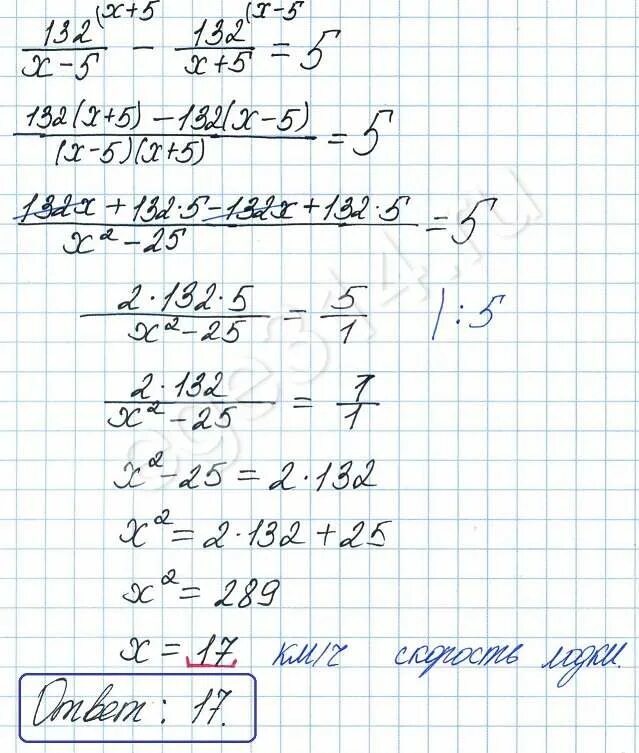 132 (x+5 / x-5 - 132 (x-5 / x+5 = 5
132(x+5) - 132(x-5) / (x-5)(x+5) = 5
132x + 132·5 - 132x + 132·5 / x² - 25 = 5
2·132·5 / x² - 25 = 5/1 | :5
2·132 / x² - 25 = 1/1
x² - 25 = 2·132
x² = 2·132 + 25
x² = 289
x = 17 км/ч скорость лодки.
Ответ: 17.
ege314.ru